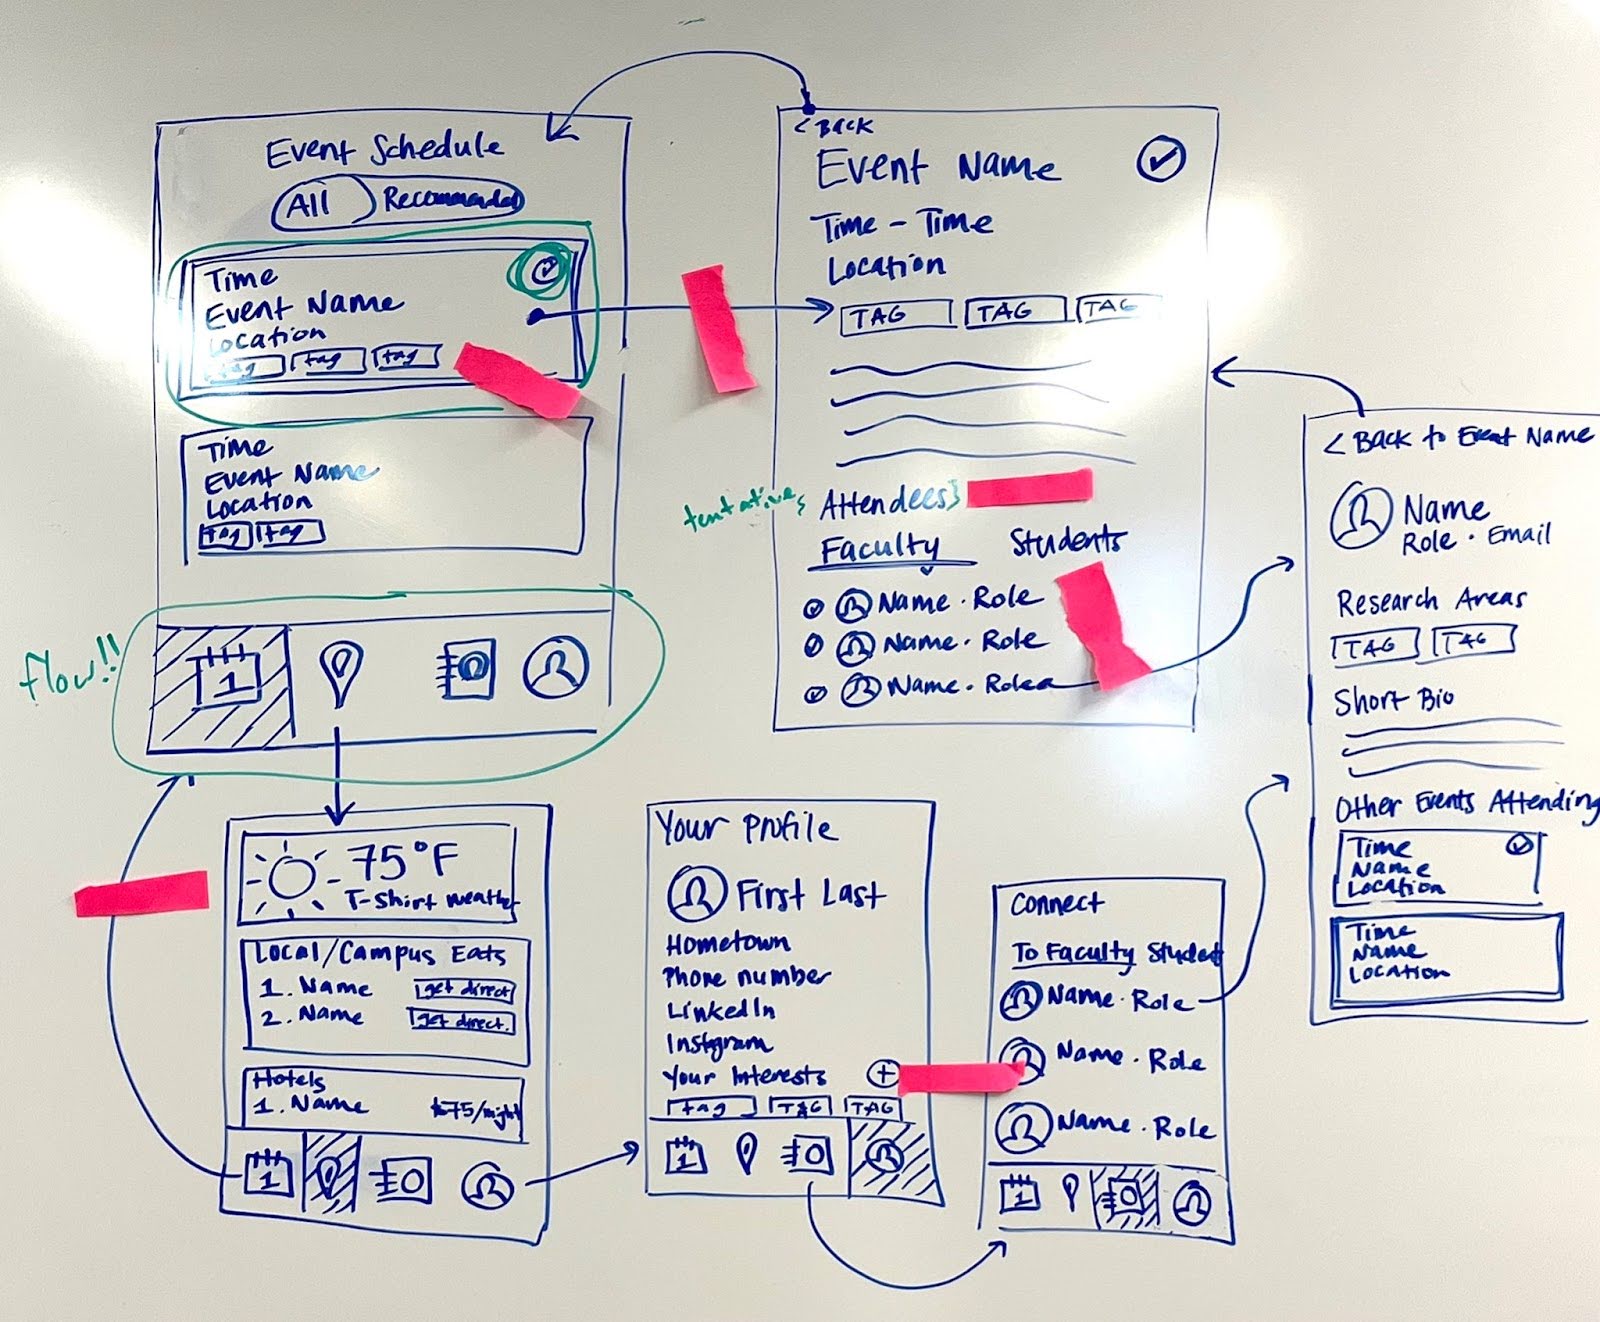 Event Schedule
All Recommended
Time
Event Name
Location
tag tag tag
Time
Event Name
Location
tag tag
flow!!
1
< Back
Event Name
Time - Time
Location
TAG TAG TAG
tentative
Attendees
Faculty Students
Name · Role
Name · Role
Name · Role
< Back to Event Name
Name
Role · Email
Research Areas
TAG TAG
Short Bio
Other Events Attending
Time
Name
Location
Time
Name
Location
75°F
T-Shirt weather
Local/Campus Eats
1. Name get direct
2. Name get direct.
Hotels
1. Name $75/night
1
Your Profile
First Last
Hometown
Phone number
LinkedIn
Instgram
Your Interests +
tag TAG TAG
1
Connect
To Faculty Student
Name · Role
Name · Role
Name · Role
1